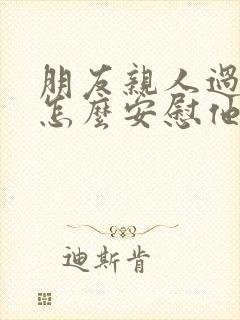 朋友親人過
怎麼安慰他
迪斯肯